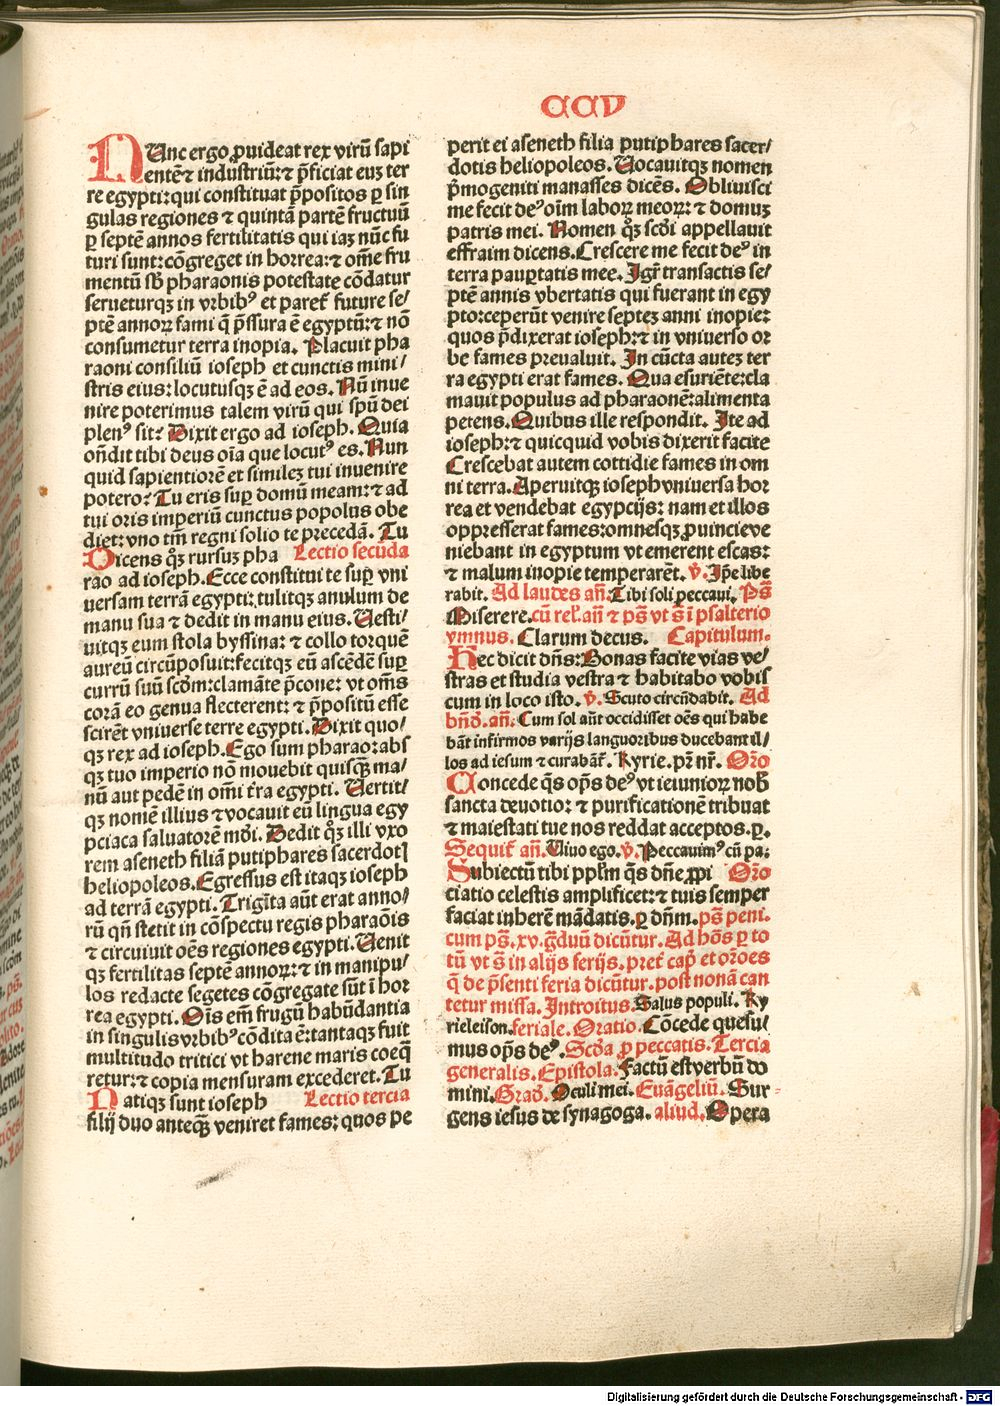 CCV
NUnc ergo ꝓuideat rex virū sapi
entē ⁊ industriū: ⁊ p̄ficiat euꝫ ter
re egypti: qui constituat p̄positos ꝑ sin
gulas regiones ⁊ quintā partē fructuū
ꝑ septē annos fertilitatis qui iaꝫ nūc fu
turi sunt: cōgreget in horrea: ⁊ om̄e fru
mentū sb̄ pharaonis potestate cōdatur
serueturqꝫ in vrbibꝰ et paret᷑ future se⸗
ptē annoꝝ fami q̄ p̄ssura ē egyptū: ⁊ nō
consumetur terra inopia. Placuit pha
raoni consiliū ioseph et cunctis mini⸗
stris eius: locutusqꝫ ē ad eos. Nū inue
nire poterimus talem virū qui spū dei
plenꝰ sit: Dixit ergo ad ioseph. Quia
on̄dit tibi deus oīa que locutꝰ es. Nun
quid sapientiorē et simileꝫ tui inuenire
potero: Tu eris suꝑ domū meam: ⁊ ad
tui oris imperiū cunctus popolus obe
diet: vno tm̄ regni solio te precedā. Tu
Dicens qꝫ̄ rursuꝫ pha Lectio secūda
rao ad ioseph. Ecce constitui te suꝑ vni
uersam terrā egypti: tulitqꝫ anulum de
manu sua ⁊ dedit in manu eius. Uesti⸗
uitqꝫ eum stola byssina: ⁊ collo torquē
aureū circūposuit: fecitqꝫ eū ascēdē suꝑ
currū suū scd̄m: clamāte p̄cone: vt om̄s
corā eo genua flecterent: ⁊ p̄positū esse
scirēt vniuerse terre egypti. Dixit quo⸗
qꝫ rex ad ioseph. Ego sum pharao: abs
qꝫ tuo imperio nō mouebit quisqꝫ̄ ma⸗
nū aut pedē in om̄i t̄ra egypti. Uertit⸗
qꝫ nomē illius ⁊ vocauit eū lingua egy
pciaca saluatorē mūdi. Dedit qꝫ̄ illi vxo
rem aseneth filiā putiphares sacerdot⁊
heliopoleos. Egressus est itaqꝫ ioseph
ad terrā egypti. Trigīta aūt erat anno⸗
rū qn̄ stetit in cōspectu regis pharaōis
⁊ circuiuit oēs regiones egypti. Uenit
qꝫ fertilitas septē annoꝝ: ⁊ in manipu⸗
los redacte segetes cōgregate sūt ī hor
rea egypti. Oīs em̄ frugū habūdantia
in singulis vrbibꝰ cōdita ē: tantaqꝫ fuit
multitudo tritici vt harene maris coeq̄
retur: ⁊ copia mensuram excederet. Tu
Natiqꝫ sunt ioseph Lectio tercia
filij duo anteqꝫ̄ veniret fames: quos pe
perit ei aseneth filia putiphares sacer⸗
dotis heliopoleos. Uocauitqꝫ nomen
p̄mogeniti manasses dicēs. Obliuisci
me fecit deꝰ oīm laboꝝ meoꝝ: ⁊ domuꝫ
patris mei. Nomen qꝫ̄ scd̄i appellauit
effraim dicens. Crescere me fecit deꝰ in
terra pauꝑtatis mee. Igr̄ transactis se⸗
ptē annis vbertatis qui fuerant in egy
pto: ceperūt venire septeꝫ anni inopie:
quos p̄dixerat ioseph: ⁊ in vniuerso or
be fames preualuit. In cūcta auteꝫ ter
ra egypti erat fames. Qua esuriēte: cla
mauit populus ad pharaonē: alimenta
petens. Quibus ille respondit. Ite ad
ioseph: ⁊ quicquid vobis dixerit facite
Crescebat autem cottidie fames in om
ni terra. Aperuitqꝫ ioseph vniuersa hor
rea et vendebat egypcijs: nam et illos
oppresserat fames: omnesqꝫ ꝓuincie ve
niebant in egyptum vt emerent escas:
⁊ malum inopie temperarēt. v̄. Ip̄e libe
rabit. Ad laudes añ. Tibi soli peccaui. Ps̄
Miserere. cū rel᷑. añ ⁊ ps̄ vt s̄ ī psalterio
ymnus. Clarum decus. Capitulum.
Hec dicit dn̄s: Bonas facite vias ve⸗
stras et studia vestra ⁊ habitabo vobis
cum in loco isto. v̄. Scuto circūdabit. Ad
bn̄d. añ. Cum sol aūt occidisset oēs qui habe
bāt infirmos varijs languoribus ducebant il⸗
los ad iesum ⁊ curabāt᷑. Kyrie. pr̄ nr̄. Oro
Concede qs̄ op̄s deꝰ vt ieiunioꝝ nob̄
sancta deuotio: ⁊ purificationē tribuat
⁊ maiestati tue nos reddat acceptos. ꝑ.
Sequit᷑ añ. Uiuo ego. v̄. Peccauimꝰ cū pa:
Subiectū tibi pplm̄ qs̄ dn̄e ꝓpi Oro
ciatio celestis amplificet: ⁊ tuis semper
faciat inherē mādatis. ꝑ dn̄m. ps̄ peni.
cum ps̄. xv. g̈duū dicūtur. Ad hōs ꝑ to
tū vt s̄ in alijs ferijs. pret᷑ cap̄ et oroēs
q̄ de p̄senti feria dicūtur. post nonā can
tetur missa. Introitus. Salus populi. Ky
rieleison. feriale. Oratio. Cōcede quesu⸗
mus op̄s deꝰ. Scd̄a ꝓ peccatis. Tercia
generalis. Epistola. Factū est verbū do
mini. Grad̄. Oculi mei. Euāgeliū. Sur⸗
gens iesus de synagoga. aliud. Opera
Digitalisierung gefördert durch die Deutsche Forschungsgemeinschaft - DFG